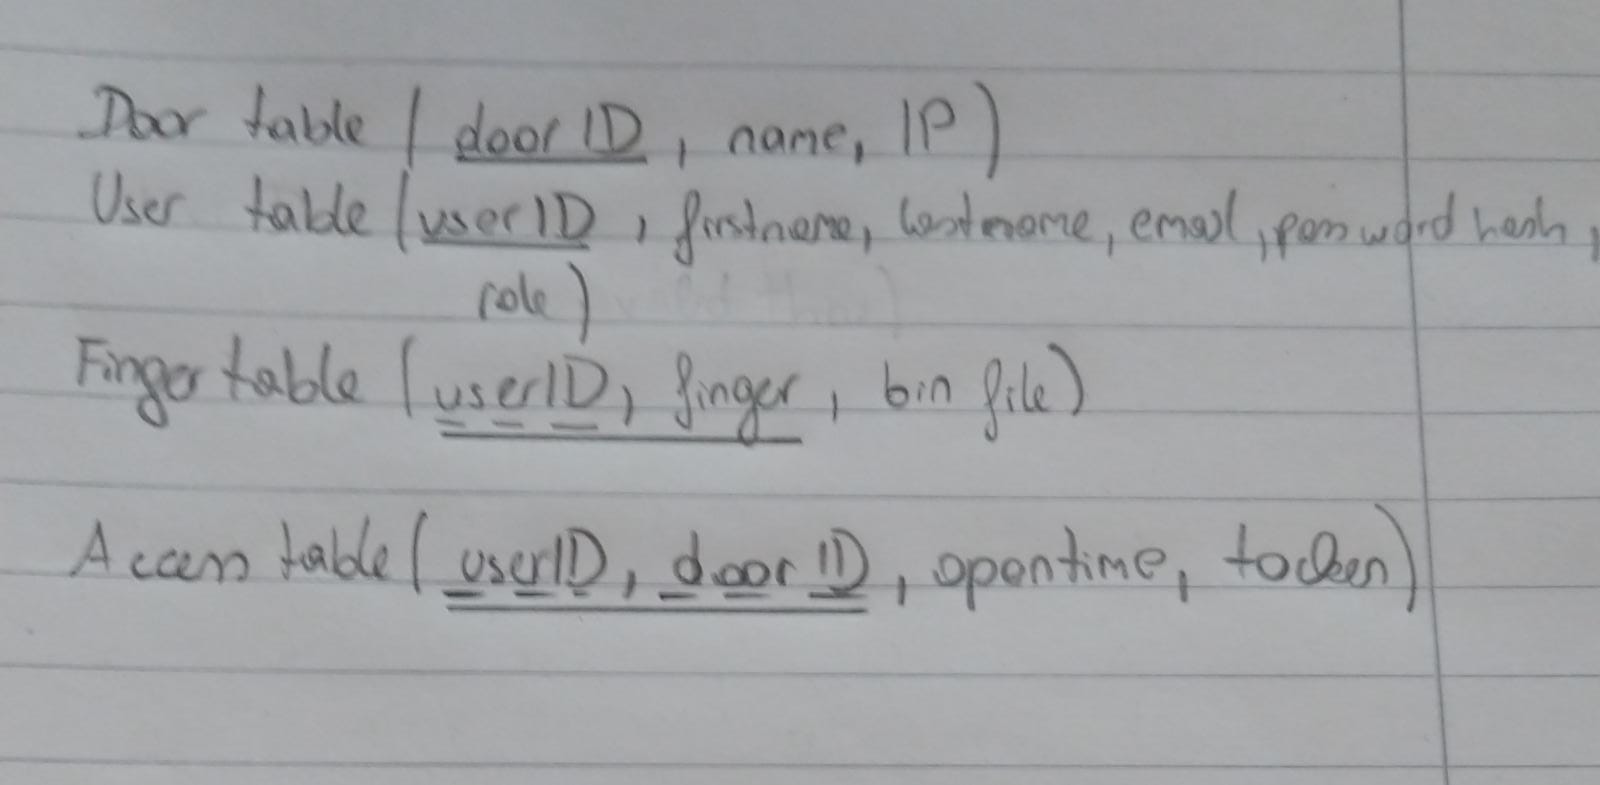 Door table ( door ID, name, IP)
User table (userID, firstname, lastname, email, password hash,
role)
Finger table (userID, finger, bin file)
Access table( userID, door ID, opentime, tocken)